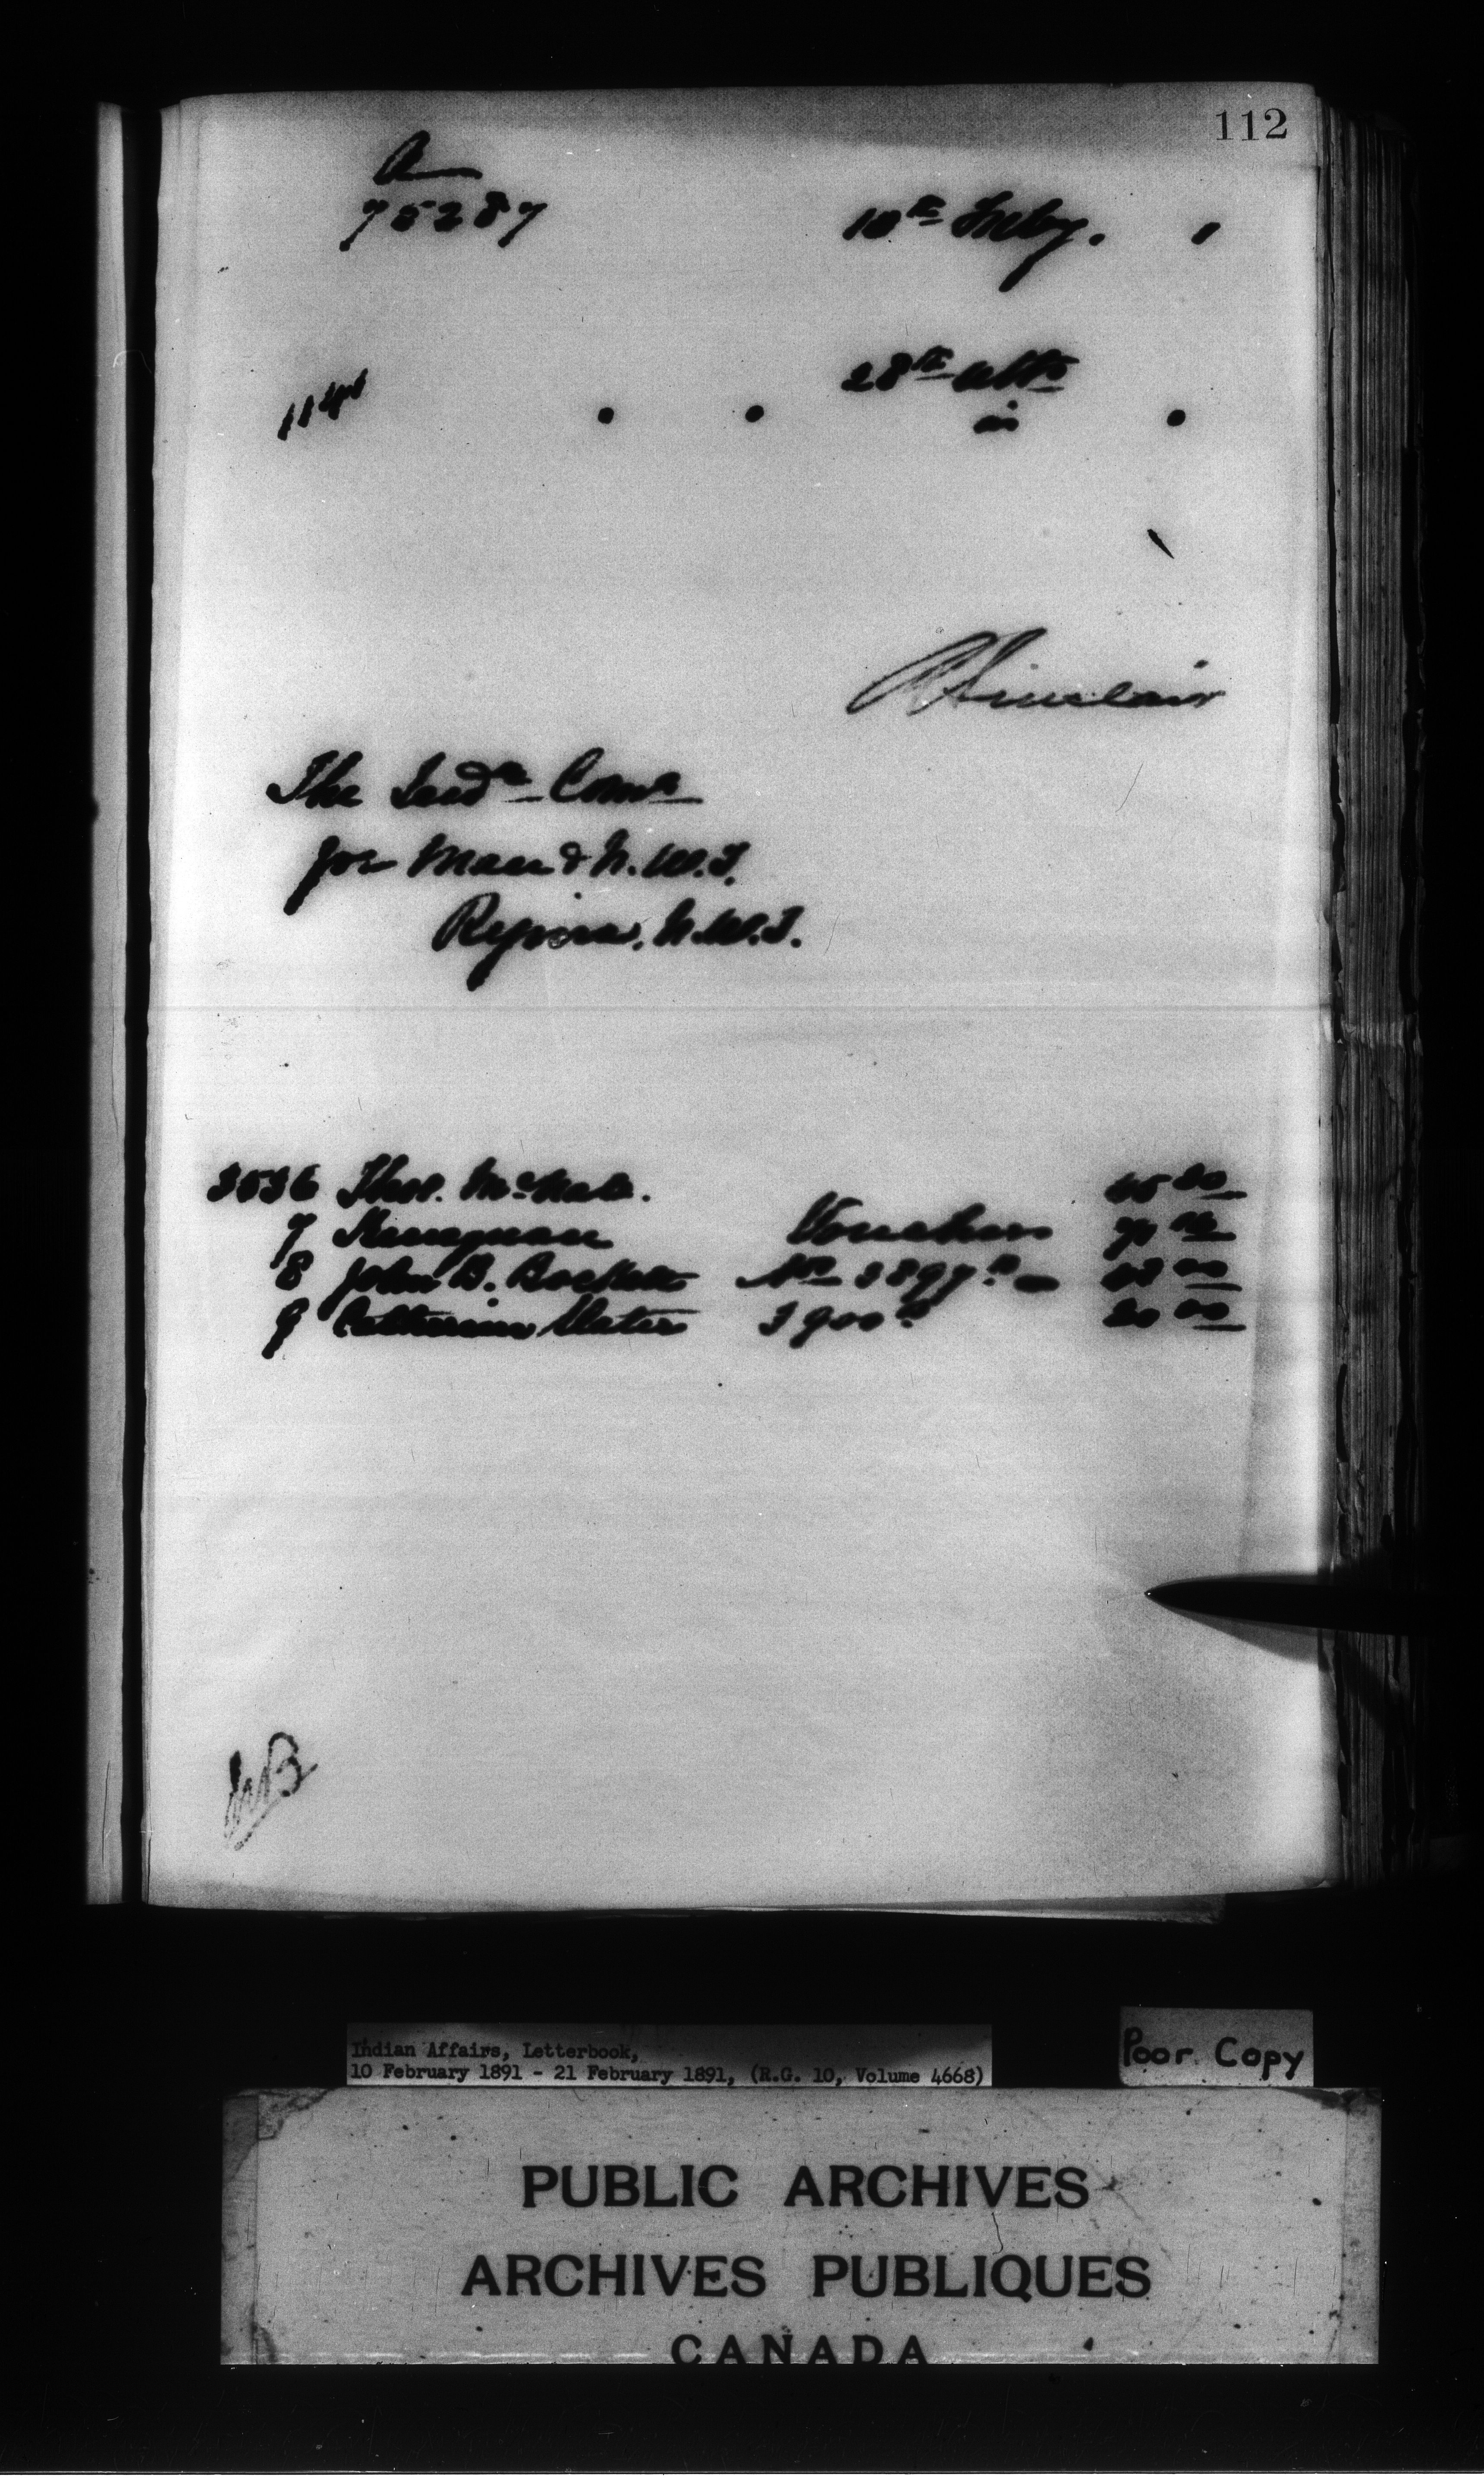 112
A
75287
10th Feby.
28th ulto
R Sinclair
The Indn Comr
for Man & N.W.T.
Regina. N.W.T.
3536 Thos. McNab.
7 Vouchers
8 John B. No 3897 48 00
9 Catherine Slater 3900 20 00
Indian Affairs, Letterbook,
10 February 1891 - 21 February 1891, (R.G. 10, Volume 4668)
Poor Copy
PUBLIC ARCHIVES
ARCHIVES PUBLIQUES
CANADA